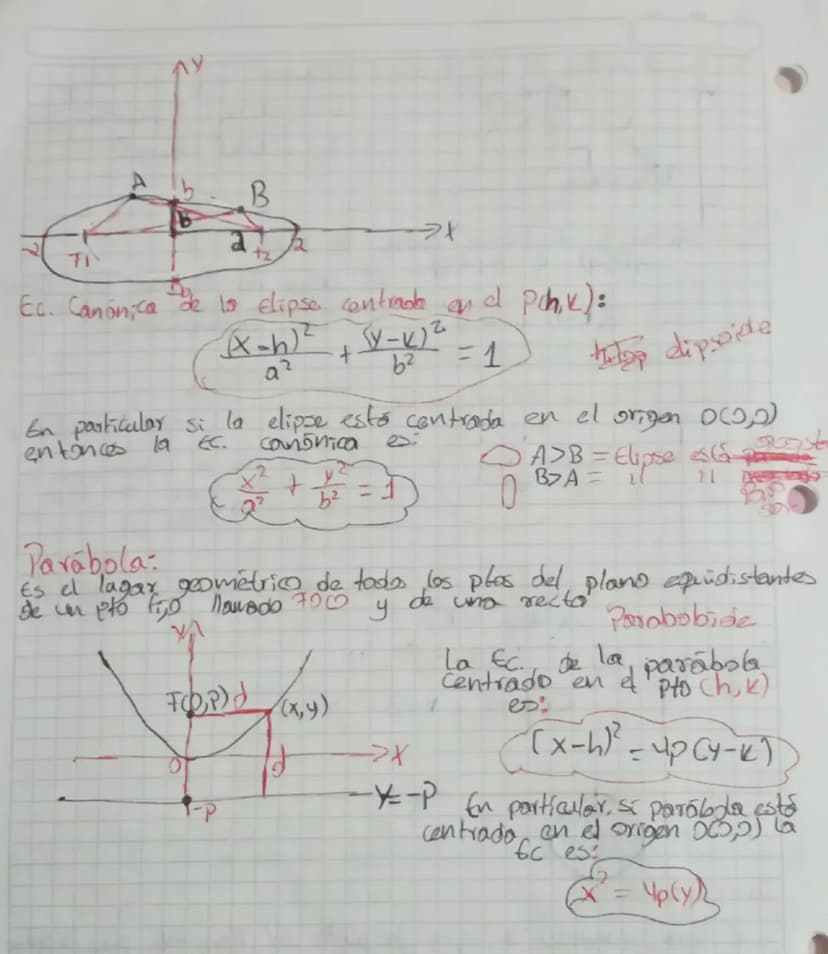 y
A
b
B
b
-2
F1
a
F2
2
x
-b
Ec. Canónica de la elipse centrada en el P(h,k):
(x-h)²/a² + (y-k)²/b² = 1
elipsoide
En particular si la elipse está centrada en el origen O(0,0)
entonces la Ec. canónica es:
x²/a² + y²/b² = 1
A>B = Elipse está
B>A = " "
Parábola:
Es el lugar geométrico de todo los ptos del plano equidistantes
de un pto fijo llamado FOCO y de una recta
Paraboloide
y
F(0,P) d
(x,y)
0
d
x
-P
y=-P
La Ec. de la parábola
centrado en el pto (h,k)
es:
(x-h)² = 4p(y-k)
En particular, si parábola está
centrada en el origen O(0,0) la
Ec es:
x² = 4p(y)